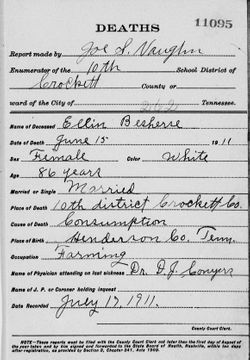 DEATHS
11095
Report made by Joe S. Vaughn
Enumerator of the 10th School District of
Crockett County or
ward of the City of 262 Tennessee.
Name of Deceased Ellin Besherse
Date of Death June 15 1911
Sex Female Color White
Age 86 years
Married or Single Married
Place of Death 10th district Crockett Co.
Cause of Death Consumption
Place of Birth Henderson Co. Tenn.
Occupation Farming
Name of Physician attending on last sickness Dr. D.J. Conyers
Name of J. P. or Coroner holding inquest
Date Recorded July 17, 1911.
County Court Clerk.
NOTE—These reports must be filed with the County Court Clerk not later than the first day of August of
the year taken and by him signed and forwarded to the State Board of Health, Nashville, within ten days
after registration, as provided by Section 3, Chapter 341, Acts 1909.